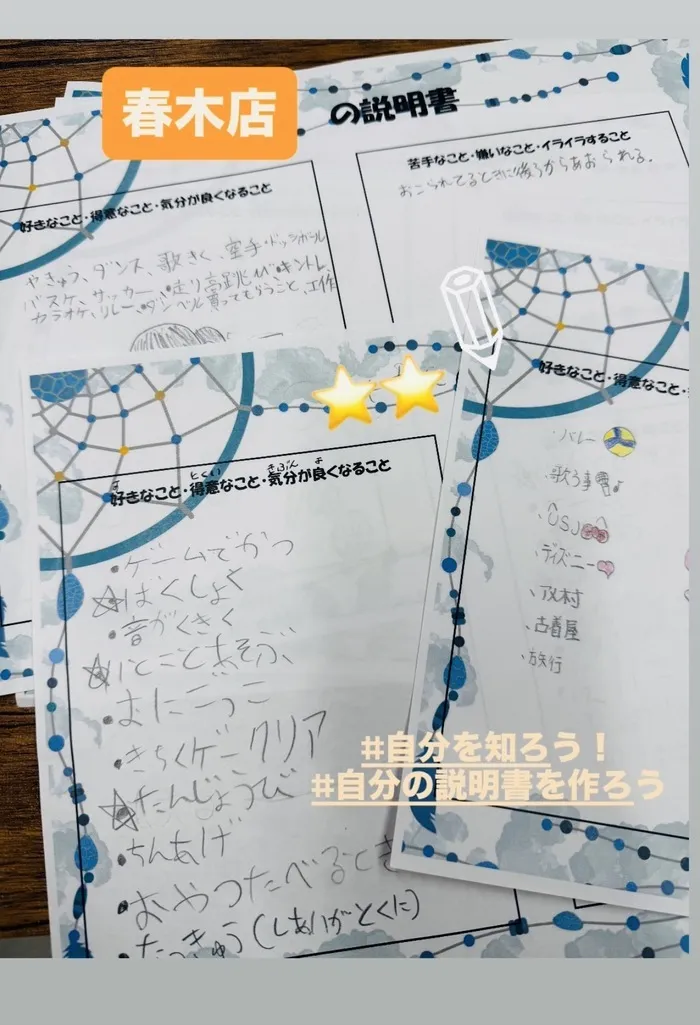 春木店
の説明書
好きなこと・得意なこと・気分が良くなること
やきゅう、ダンス、歌きく、空手・ドッジボール
バスケ、サッカー、走り高跳び、キントレ
カラオケ、リレー、ダンベル買ってもらうこと、工作
苦手なこと・嫌いなこと・イライラすること
おこられてるときに後ろからあおられる。
好きなこと・得意なこと・気分が良くなること
・ゲームでかつ
ばくしょく
・音がくきく
いとことあそぶ
・おにごっこ
・きちくゲークリア
たんじょうび
・ちんあげ
・おやつたべるとき
・たっきゅう(しあいがとくに)
好きなこと・得意なこと・
・バレー
・歌う事
・USJ
・ディズニー
・古着屋
・旅行
#自分を知ろう！
#自分の説明書を作ろう